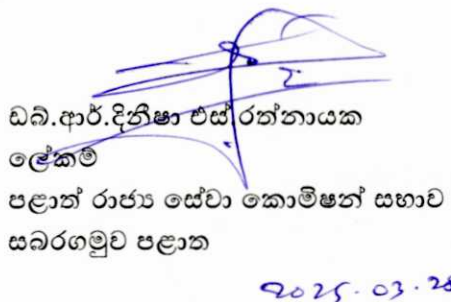 ඩබ්.ආර්.දිනීෂා එස්.රත්නායක
ලේකම්
පළාත් රාජ්‍ය සේවා කොමිෂන් සභාව
සබරගමුව පළාත
2025.03.28